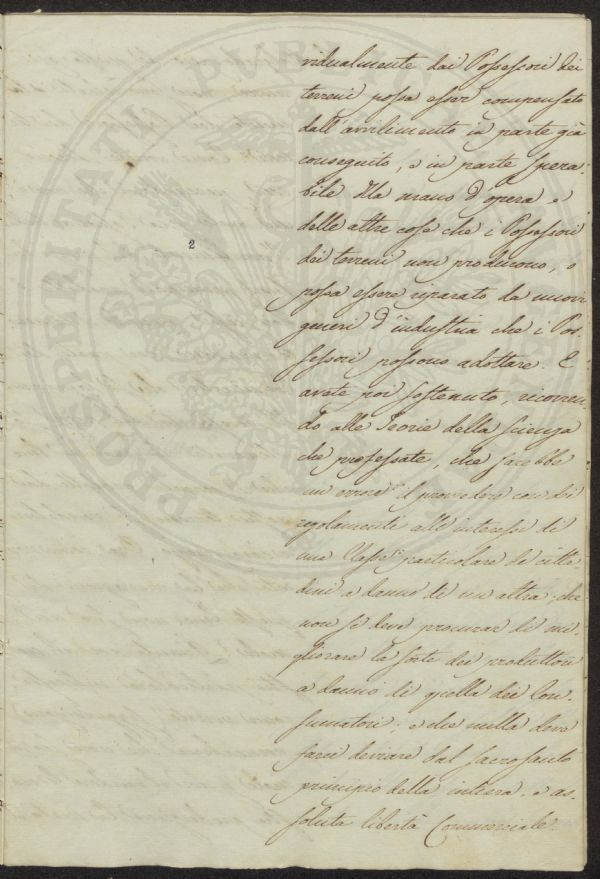 vidualmente dai Possessori dei
terreni possa esser compensato
dall'avvilimento in parte già
conseguito, e in parte spera-
bile della mano d'opera e
delle altre cose che i Possessori
dei terreni non producono, o
possa essere riparato da nuovi
generi d'industria che i Pos-
sessori possono adottare. E
avete poi sostenuto, ricorren-
do alle Teorie della scienza
che professate, che sarebbe
un errore il provvedere con dei
regolamenti alle interessi di
una Classe particolare di citta-
dini a danno di un altra; che
non si deve procurar di mi-
gliorare la sorte dei produttori
a danno di quella dei Con-
sumatori; e che nulla deve
farci deviare dal sacrosanto
principio della intiera, e as-
soluta libertà Commerciale.
2
PROSPERITATI PVBLI